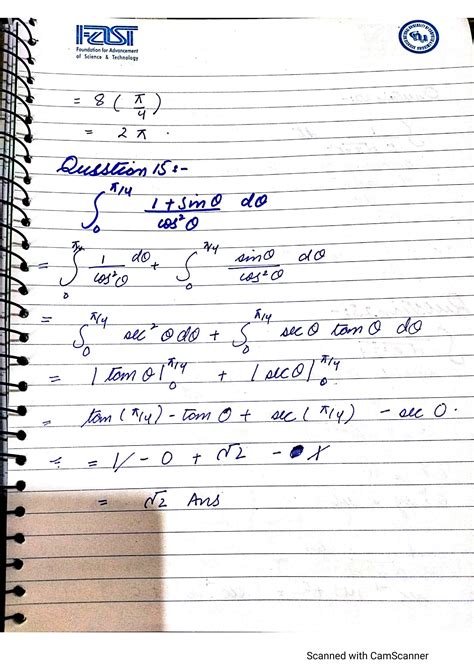 FAST
Foundation for Advancement
of Science & Technology
= 8 ( π/4 )
= 2 π .
Question 15 :-
∫₀^π/4 (1 + sin θ)/(cos²θ) dθ
= ∫₀^π/4 1/(cos²θ) dθ + ∫₀^π/4 sin θ/(cos²θ) dθ
= ∫₀^π/4 sec²θ dθ + ∫₀^π/4 sec θ tan θ dθ
= | tan θ |₀^π/4 + | sec θ |₀^π/4
= tan (π/4) - tan 0 + sec (π/4) - sec 0 .
= 1 - 0 + √2 - 1
= √2 Ans
Scanned with CamScanner